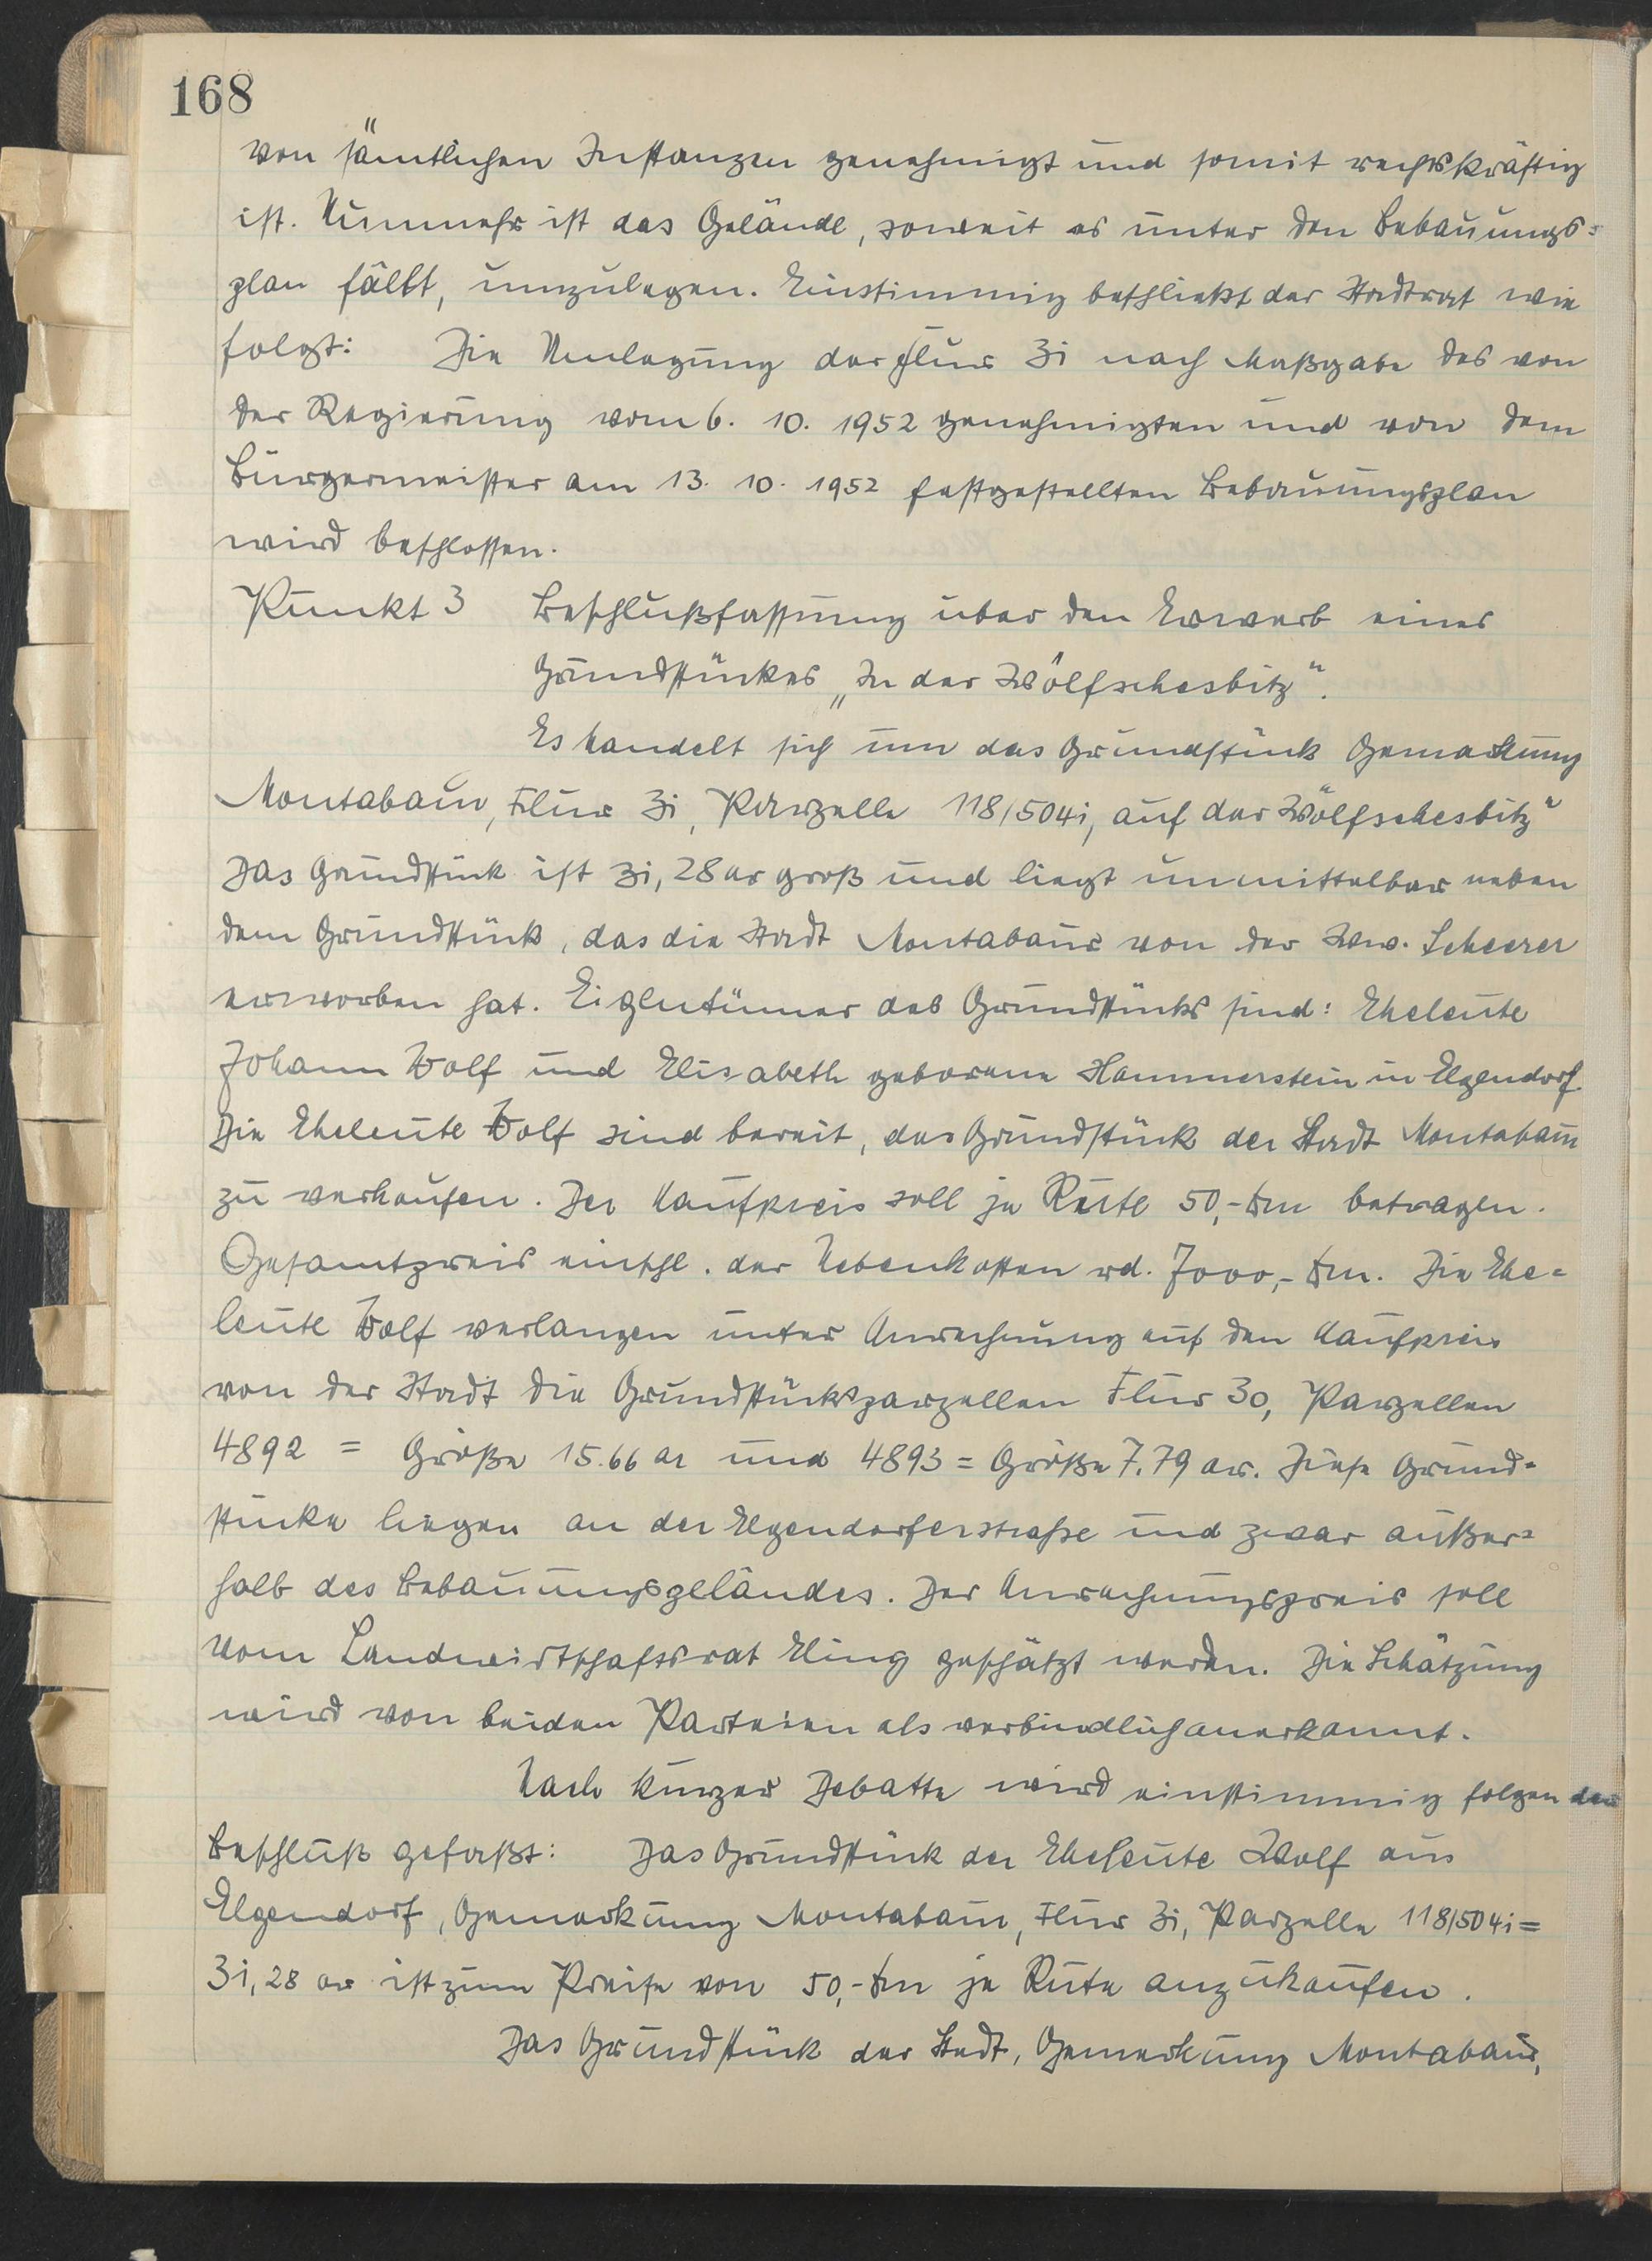 168
von sämtlichen Instanzen genehmigt und somit rechtskräftig
ist. Nunmehr ist das Gelände, soweit es unter den Bebauungs=
plan fällt, umzulegen. Einstimmig beschließt der Stadtrat wie
folgt: Die Umlegung der Flur 31 nach Maßgabe des von
der Regierung vom 6. 10. 1952 genehmigten und von dem
Bürgermeister am 13. 10. 1952 festgestellten Bebauungsplan
wird beschlossen.
Punkt 3 Beschlußfassung über den Erwerb eines
Grundstückes „In der Wölfschesbitz".
Es handelt sich um das Grundstück Gemarkung
Montabaur, Flur 31, Parzelle 118/5041, auf der Wölfschesbitz"
Das Grundstück ist 31,28 ar groß und liegt unmittelbar neben
dem Grundstück, das die Stadt Montabaur von der Ww. Scheerer
erworben hat. Eigentümer des Grundstücks sind: Eheleute
Johann Wolf und Elisabeth geborene Hammerstein in Elgendorf.
Die Eheleute Wolf sind bereit, das Grundstück der Stadt Montabaur
zu verkaufen. Der Kaufpreis soll je Rute 50,- Dm betragen.
Gesamtpreis einschl. der Nebenkosten rd. 7000,- Dm. Die Ehe=
leute Wolf verlangen unter Anrechnung auf den Kaufpreis
von der Stadt die Grundstücksparzellen Flur 30, Parzellen
4892 = Größe 15.66 ar und 4893 = Größe 7.79 ar. Diese Grund=
stücke liegen an der Elgendorferstraße und zwar außer=
halb des Bebauungsgeländes. Der Anrechnungspreis soll
vom Landwirtschaftsrat Eling geschätzt werden. Die Schätzung
wird von beiden Parteien als verbindlich anerkannt.
Nach kurzer Debatte wird einstimmig folgender
Beschluß gefaßt: Das Grundstück der Eheleute Wolf aus
Elgendorf, Gemarkung Montabaur, Flur 31, Parzelle 118/5041 =
31,28 ar ist zum Preise von 50,- Dm je Rute anzukaufen.
Das Grundstück der Stadt, Gemarkung Montabaur,